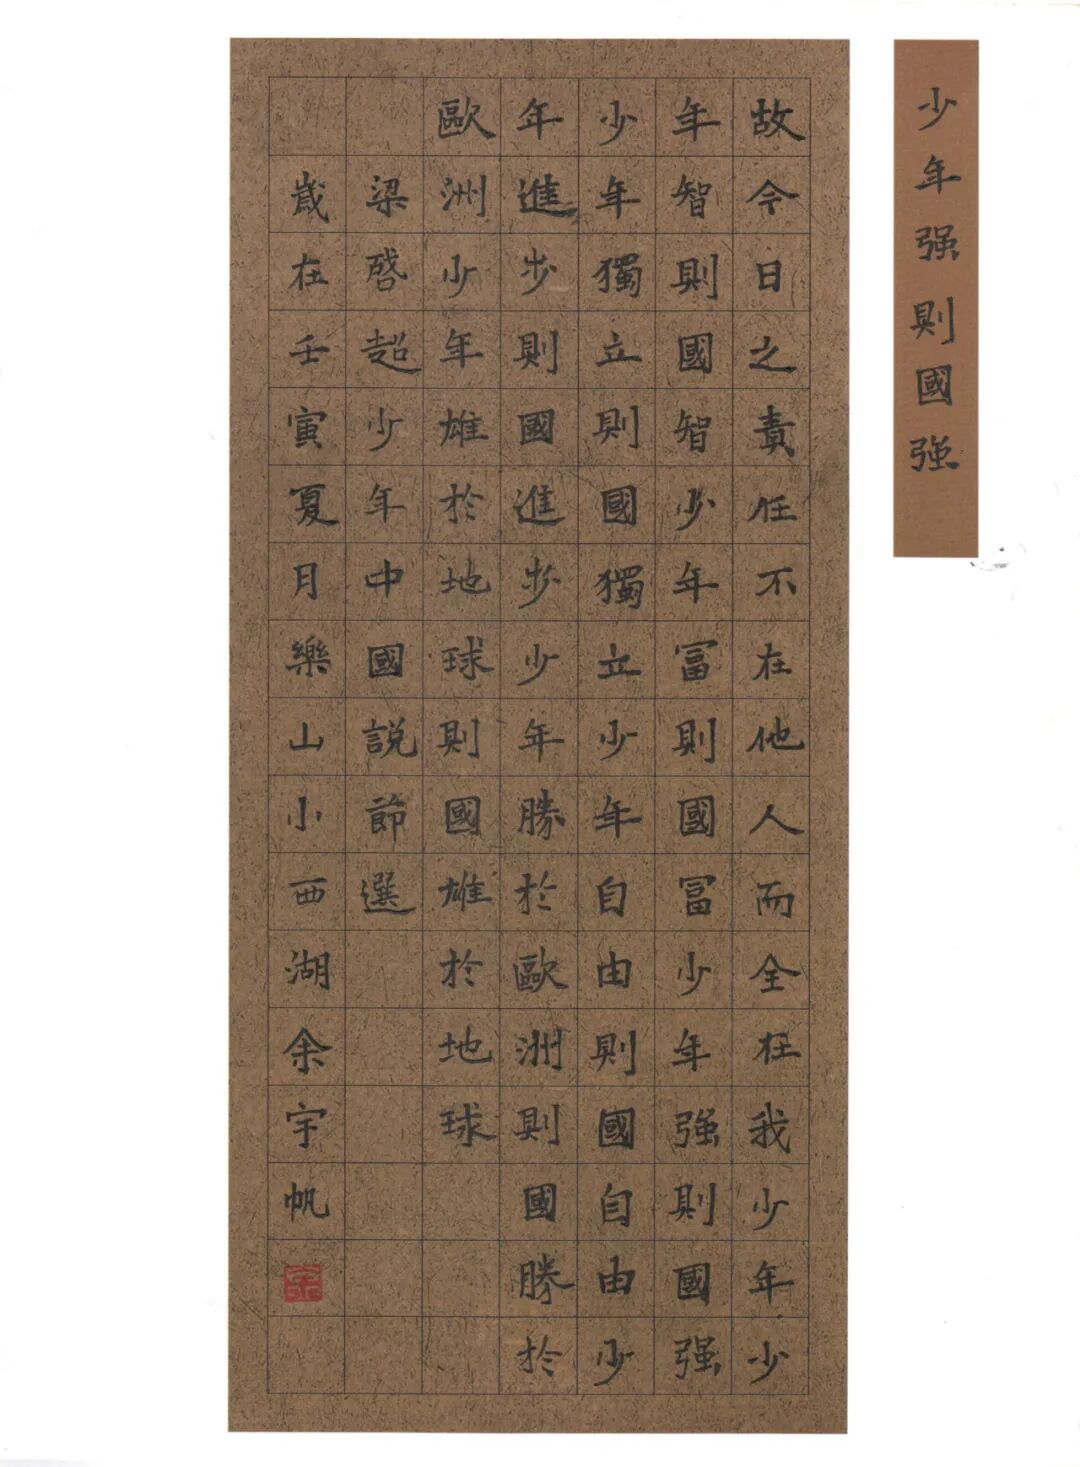 少年强則國強
故今日之責任不在他人而全在我少年少
年智則國智少年富則國富少年強則國强
少年獨立則國獨立少年自由則國自由少
年進步則國進步少年勝於歐洲則國勝於
歐洲少年雄於地球則國雄於地球
梁啓超少年中國説節選
歲在壬寅夏月樂山小西湖余宇帆